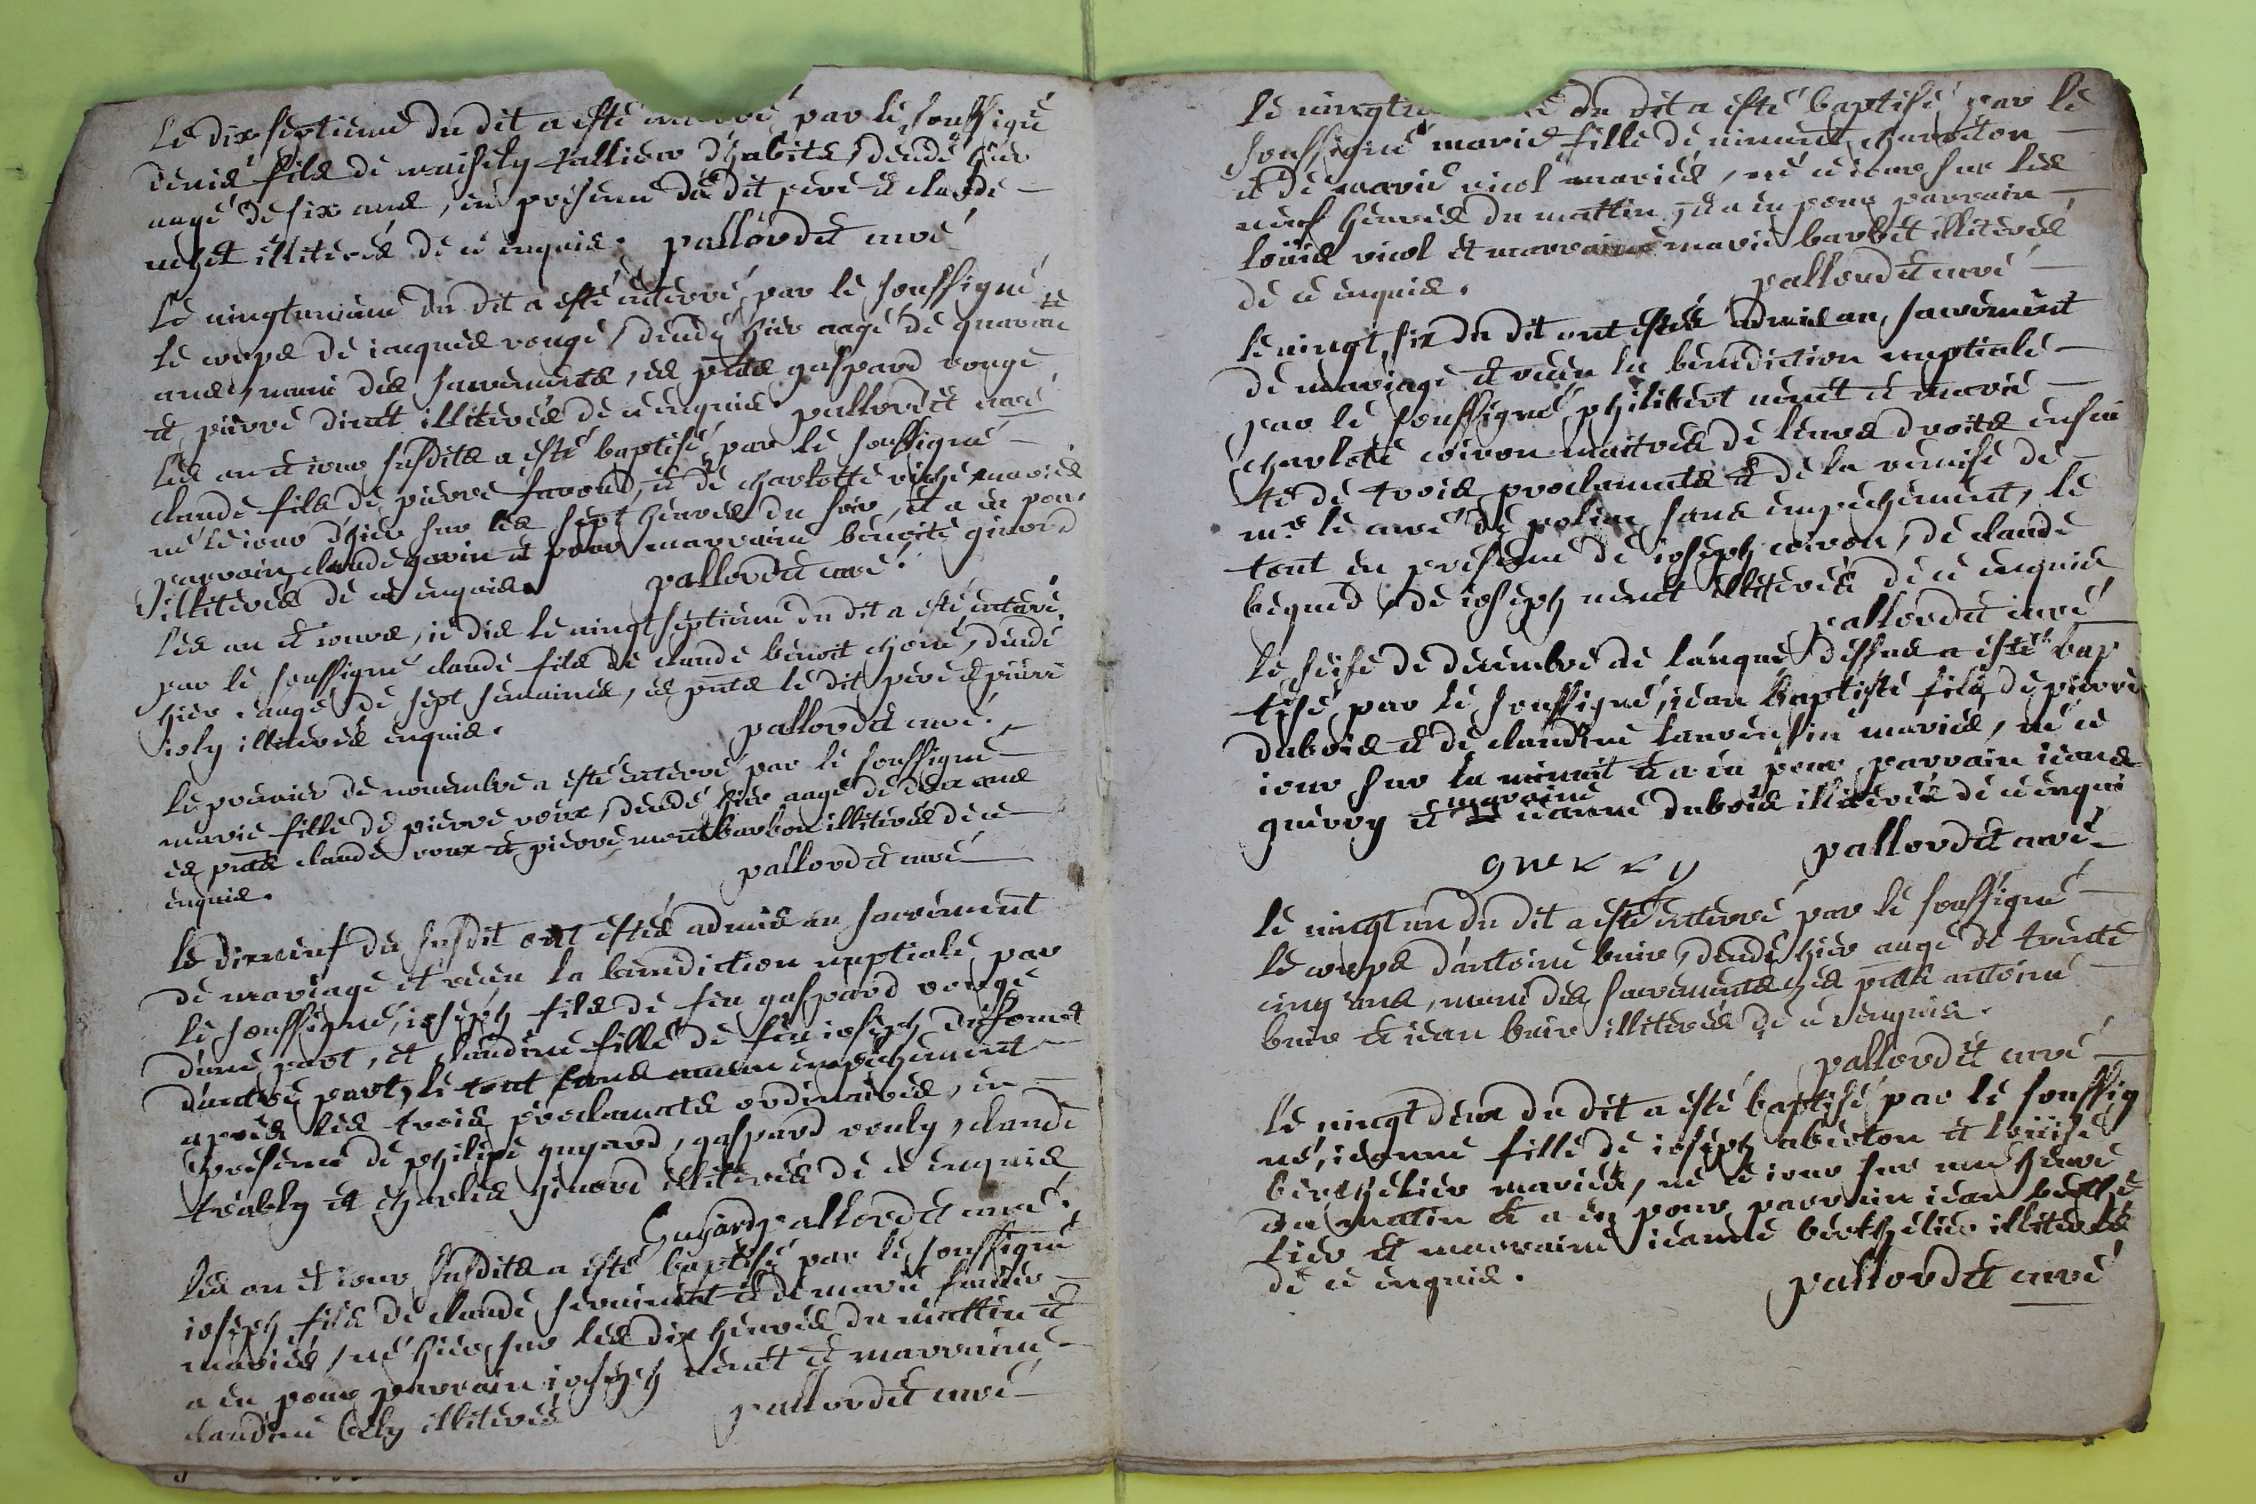 Le dix septieme du dit a esté enterré par le soussigné
denis fils de tallier d'habits, dcedé hier
aagé de six ans, en presence du dit pere et claude
illiterés de ce enquis. pallordet curé
Le vingtunieme du dit a esté enterré par le soussigné
le corps de iacques rouge, dcedé hier aagé de quarante
ans, muni des sacrements, es pnts gaspard rouge
et pierre illiterés de ce enquis. pallordet curé
Les an et iour susdits a esté baptisé par le soussigné
claude fils de pierre et de charlotte mariés
né le iour d'hier sur les sept heures du soir, et a eu pour
parrain claude et pour marraine benoite
illiterés de ce enquis. pallordet curé.
Les an et iours, ie dis le vingt septieme du dit a esté enterré
par le soussigné claude fils de claude benoit, dcedé
hier aagé de sept semaines, es pnts le dit pere et pierre
ioly illiterés enquis. pallordet curé.
Le premier de novembre a esté enterré par le soussigné
marie fille de pierre roux, dcedé hier aagé de deux ans
es pnts claude roux et pierre montbarbon illiterés de ce
enquis. pallordet curé
Le dixneuf du susdit ont estés admis au sacrement
de mariage et receu la benediction nuptiale par
le soussigné, ioseph fils de feu gaspard rouge
d'une part, et claudine fille de feu ioseph
d'autre part, le tout sans aucun empechement
apres les trois proclamats ordinaires, en
presence de philipe guyard, gaspard, claude
et charles illiterés de ce enquis
Guyard pallordet curé.
Les an et iour susdits a esté baptisé par le soussigné
ioseph fils de claude et de marie
mariés, né hier sur les dix heures du mattin et
a eu pour parrain ioseph nevret et marraine
claudine bely illiterés pallordet curé
Le du dit a esté baptisé par le
soussigné marie fille de vincent charreton
et de marie mariés, né ce iour sur les
neuf heures du mattin, et a eu pour parrain
loüis et marraine marie barbet illiterés
de ce enquis. pallordet curé
Le vingt six du dit ont estés admis au sacrement
de mariage et receu la benediction nuptiale
par le soussigné philibert nevret et marie
charlote coiron maitres de leurs droits ensui
te de trois proclamats et de la remise de
mr. le curé de sans empechement, le
tout en presence de ioseph coiron, de claude
de ioseph nevret illiterés de ce enquis
pallordet curé
Le seise de decembre de l'anque dessus a esté bap
tisé par le soussigné, iean baptiste fils de pierre
dubois et de claudine laurensin mariés, né ce
iour sur la minuit et a eu pour parrain iean
guerry et marraine ieanne dubois illiterés de ce enqui
pallordet curé
guerry
Le vingt un du dit a esté enterré par le soussigné
le corps d'antoine buir, dcedé hier aagé de trente
cinq ans, muni des sacrements, es pnts antoine
buir et iean buir illiterés de ce enquis.
pallordet curé
Le vingt deux du dit a esté baptisé par le soussig
né, ieanne fille de ioseph et loüise
mariés, né ce iour sur une heure
du matin et a eu pour parrain iean berthe
lier et marraine ieanne berthelier illiterés
de ce enquis. pallordet curé